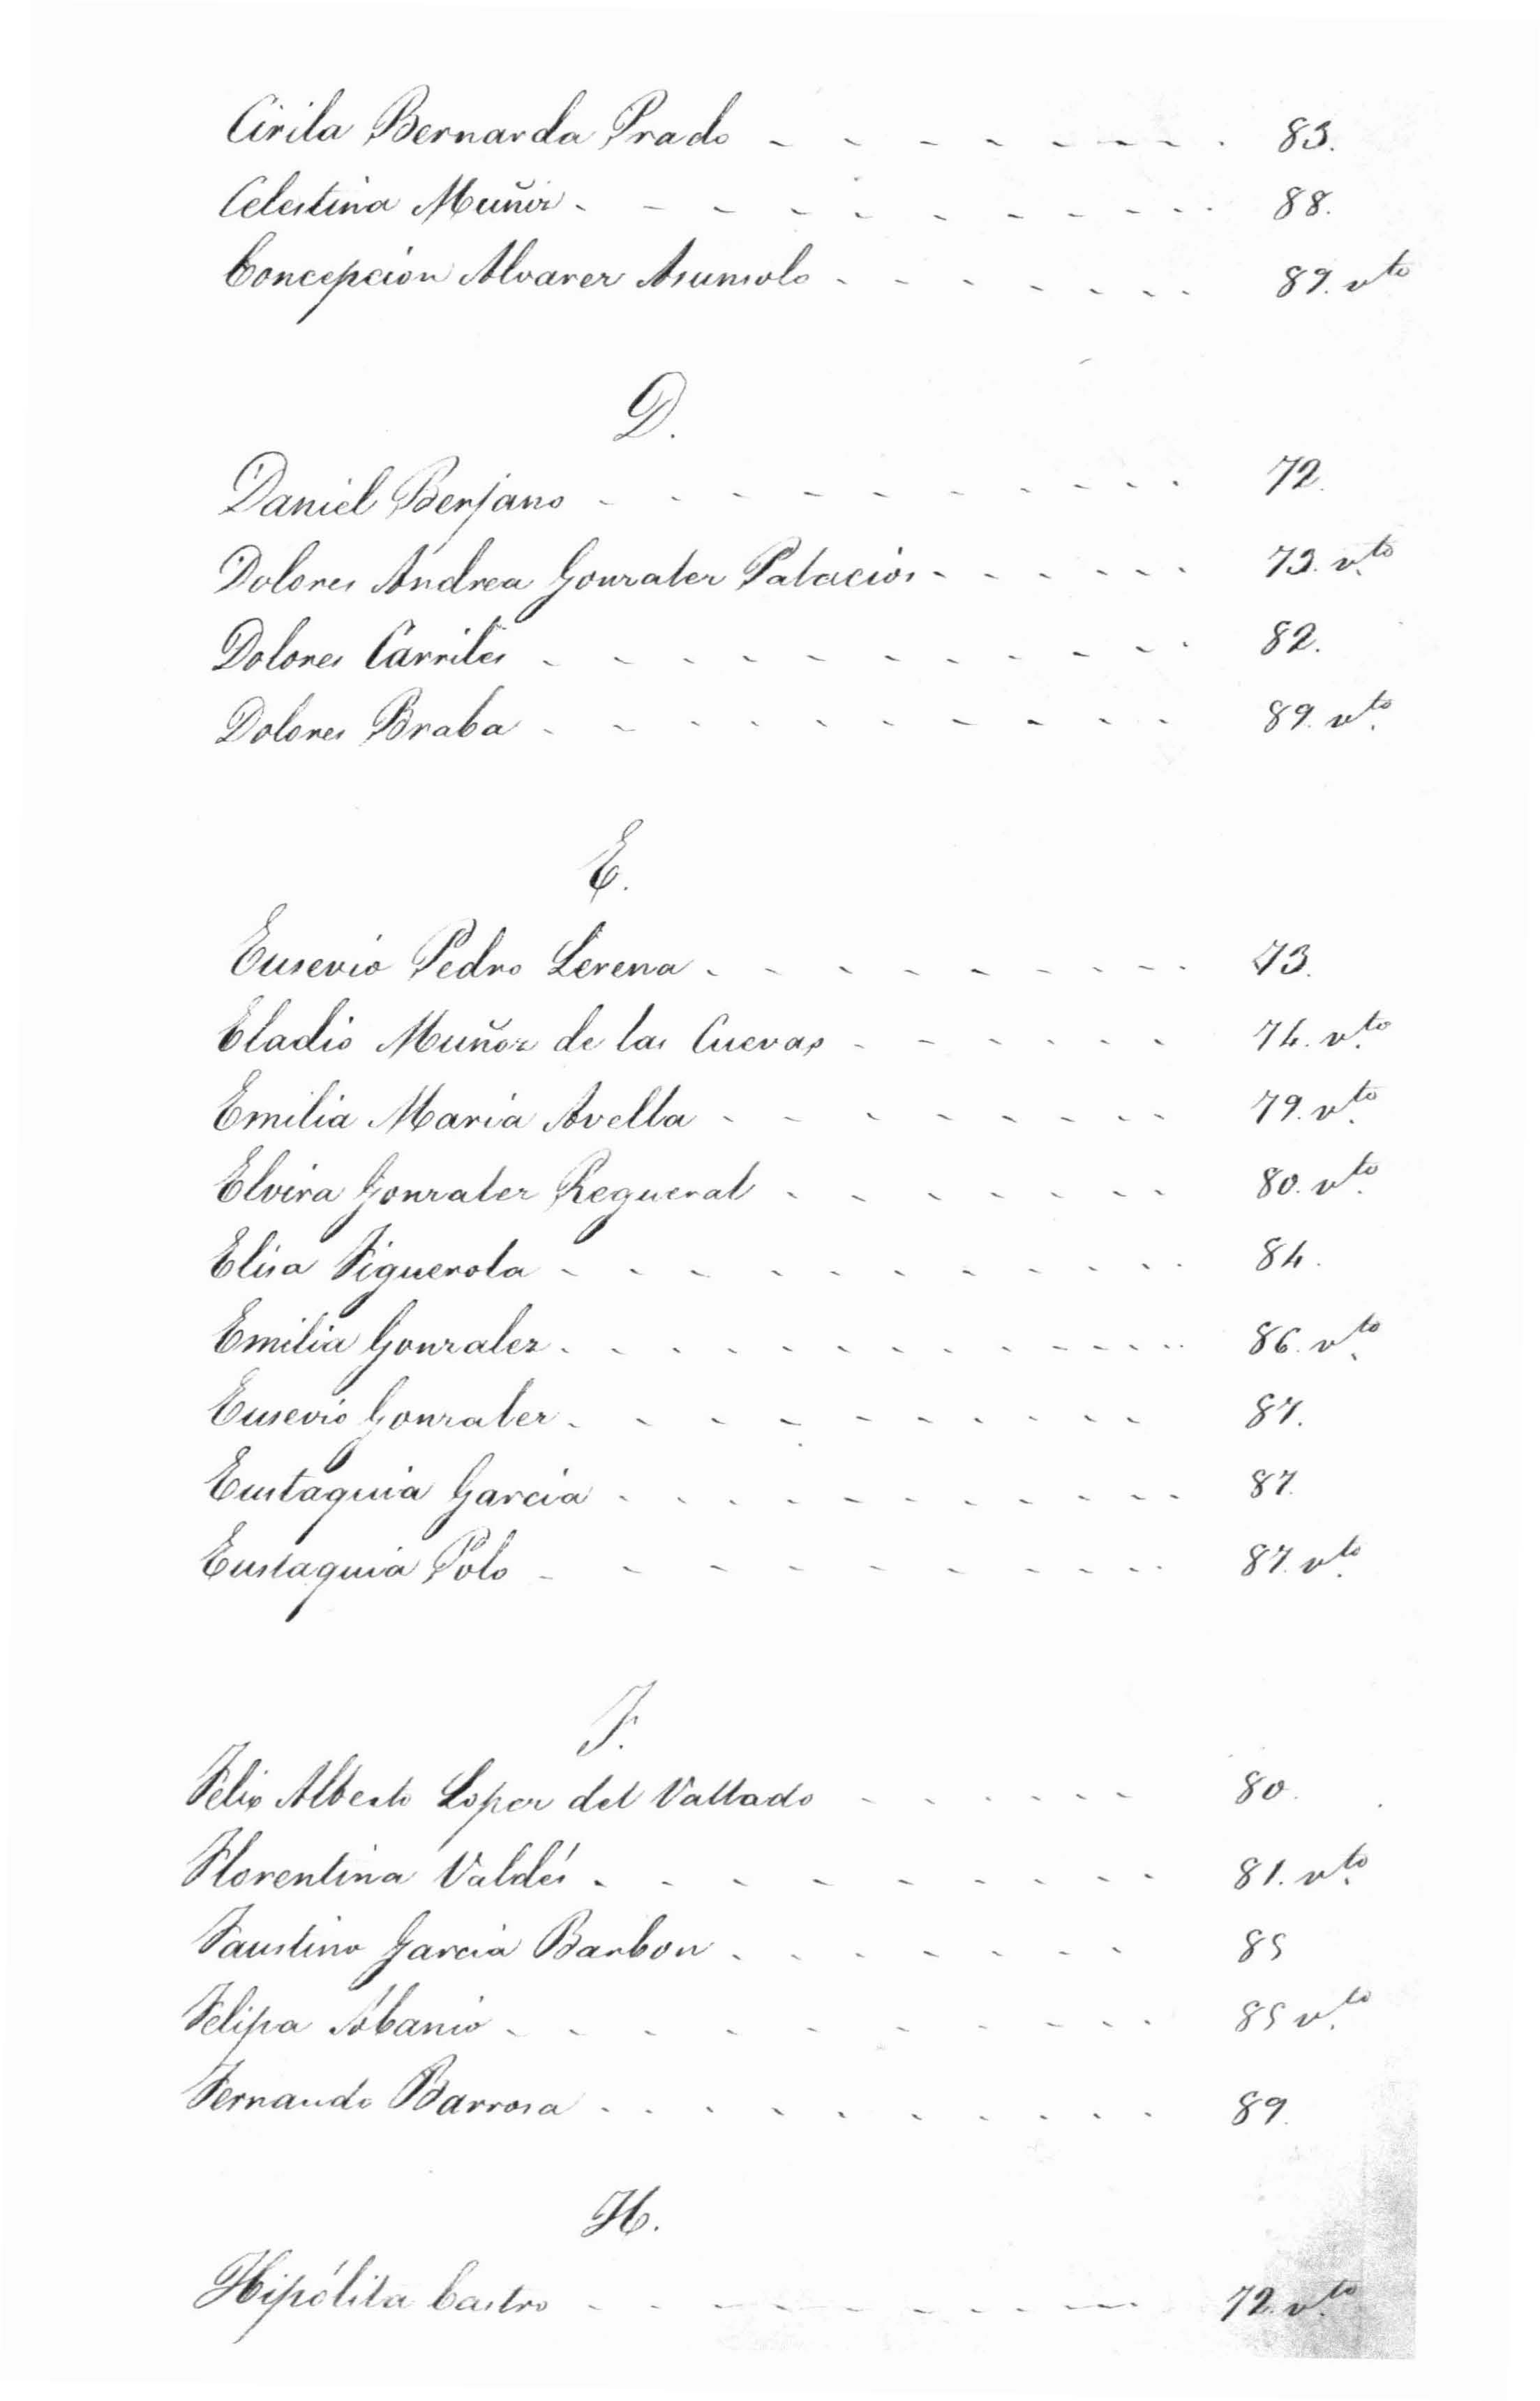 Cirila Bernarda Prado - - - - - - - - 83.
Celestina Muñiz - - - - - - - - - - 88.
Concepcion Alvarez Asunsolo - - - - - - - 89. vto
D.
Daniel Berjano - - - - - - - - - - 72.
Dolores Andrea Gonzalez Palacios - - - - - - 73. vto
Dolores Carriles - - - - - - - - - - - 82.
Dolores Braba - - - - - - - - - - 89. vto
E.
Eusevio Pedro Lerena - - - - - - - - - 73.
Eladio Muñoz de las Cuevas - - - - - - 74. vto
Emilia Maria Avella - - - - - - - - 79. vto
Elvira Gonzalez Regueral - - - - - - - 80. vto
Elisa Figuerola - - - - - - - - - - - 84.
Emilia Gonzalez - - - - - - - - - - - 86. vto
Eusevio Gonzalez - - - - - - - - - - 87.
Eustaquia Garcia - - - - - - - - - - - 87.
Eustaquia Polo - - - - - - - - - - 87. vto
F.
Felix Alberto Lopez del Vallado - - - - - - 80.
Florentina Valdés - - - - - - - - - - 81. vto
Faustino Garcia Barbon - - - - - - - 85
Felipa Abanio - - - - - - - - - - - 85 vto
Fernando Barrosa - - - - - - - - - - 89.
H.
Hipólita Castro - - - - - - - - - - - 72. vto